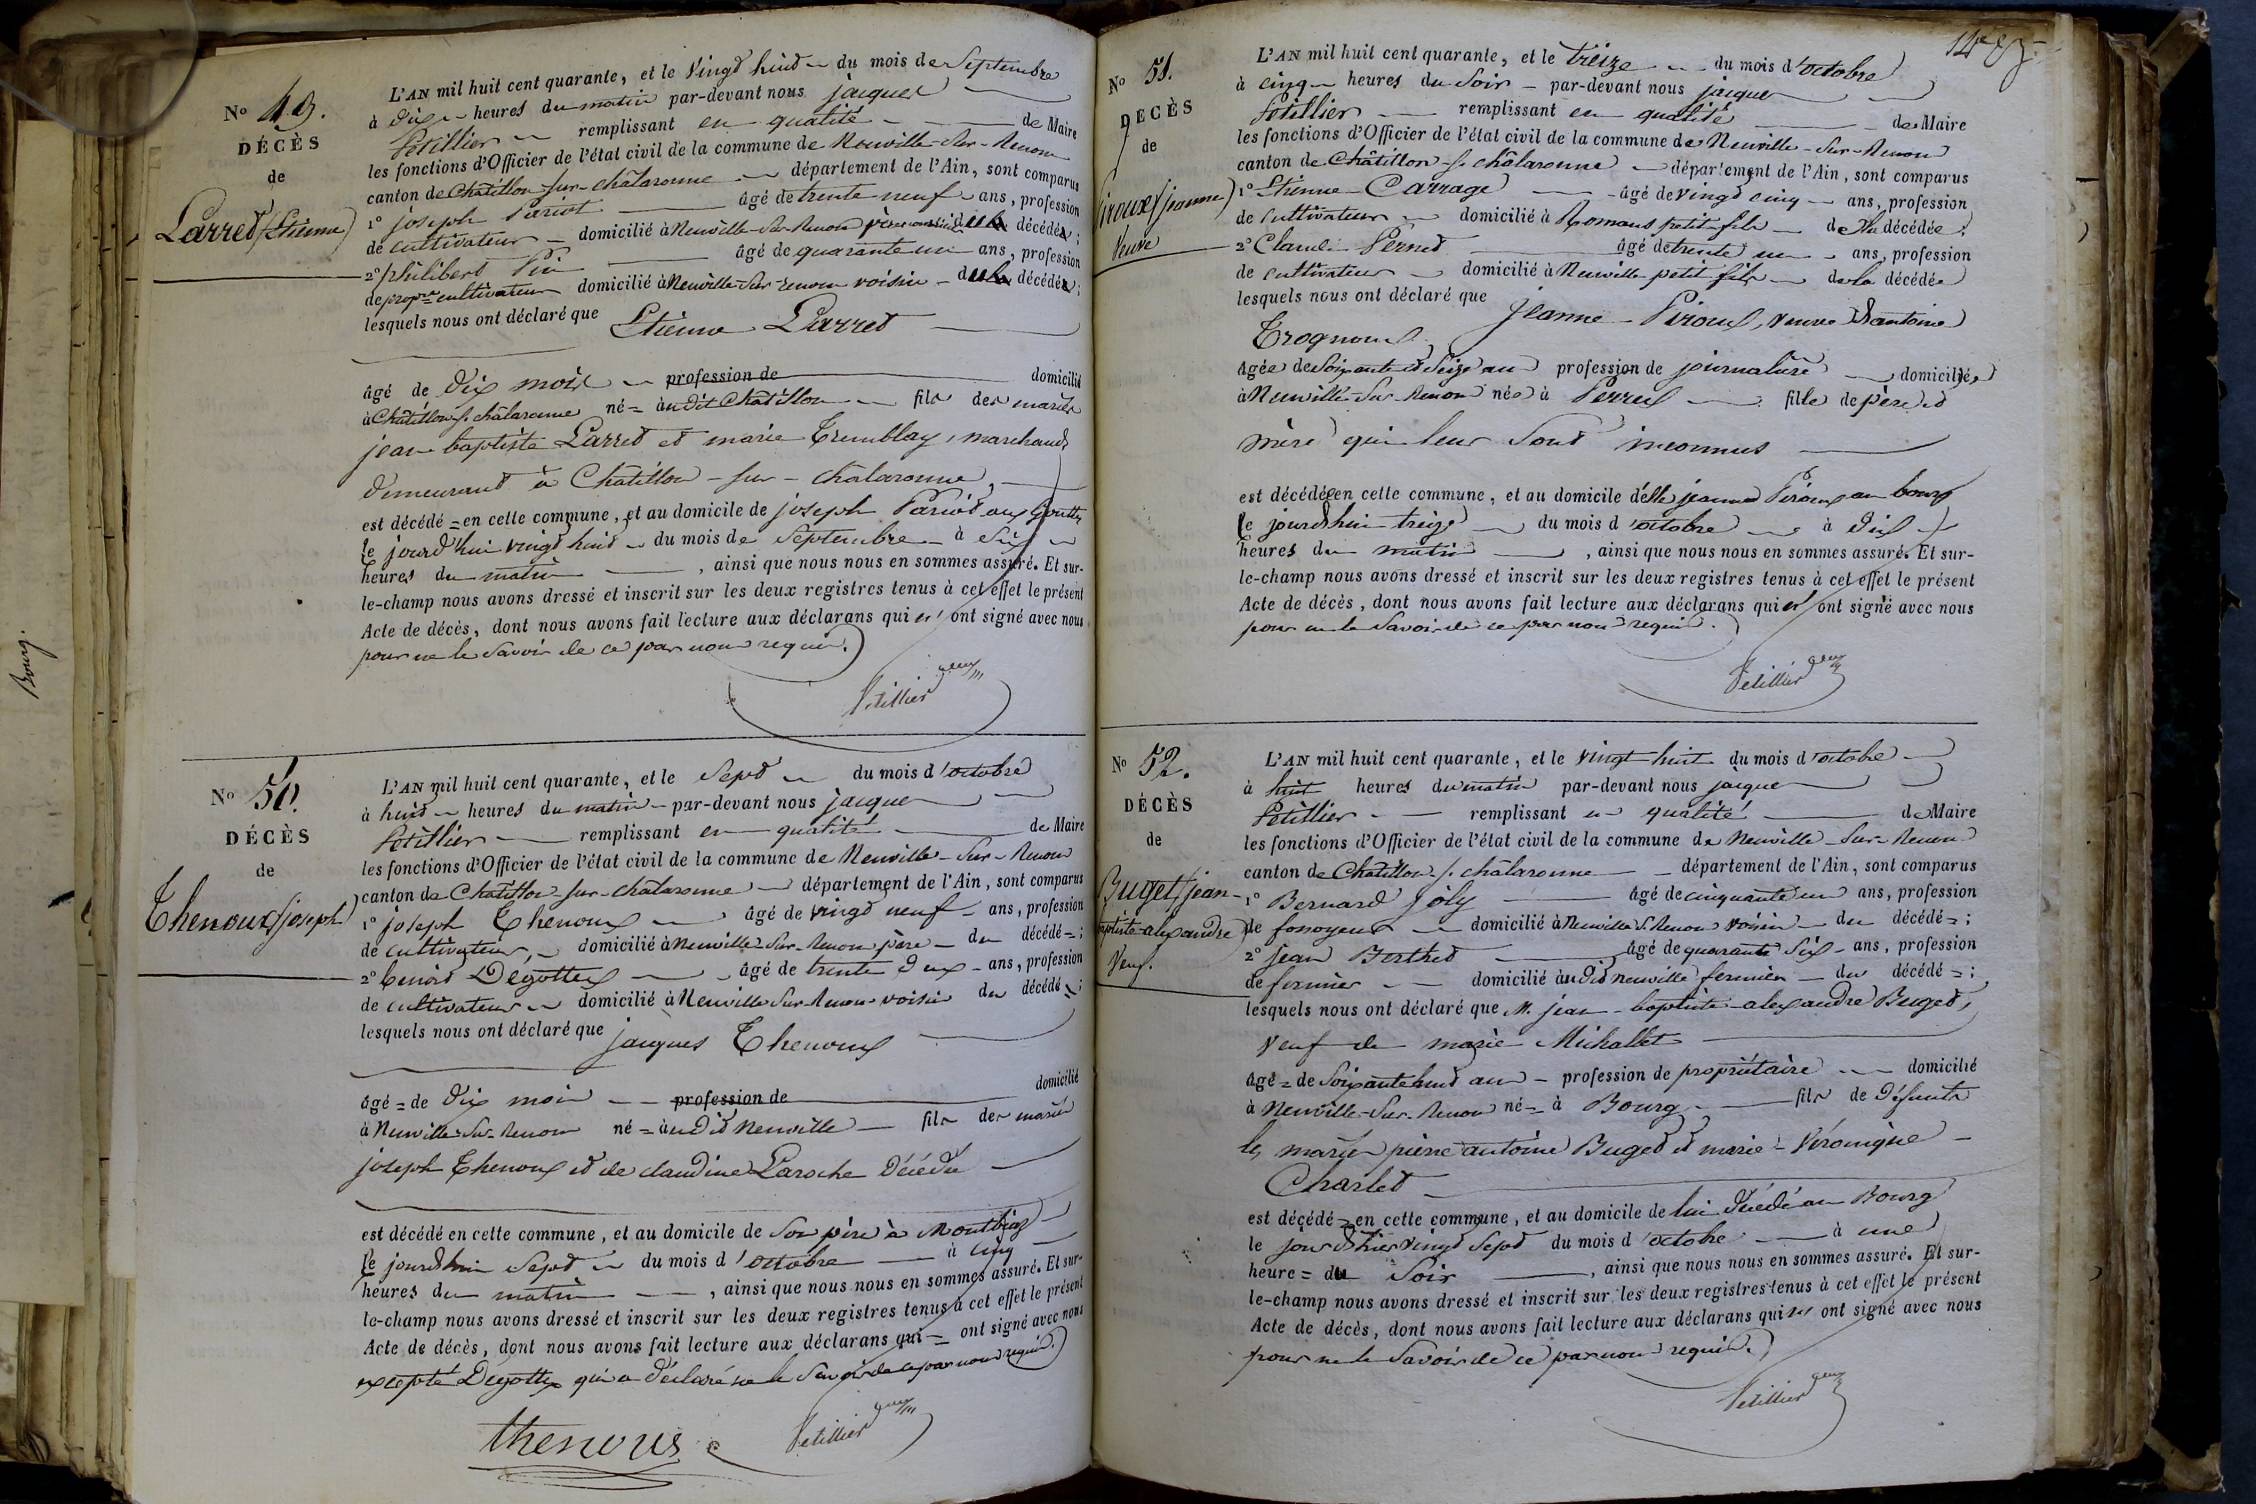 Bourg.
No 49.
DÉCÈS
de
Larret (Etienne)
L'AN mil huit cent quarante, et le vingt huit du mois de Septembre
à dix heures du matin par-devant nous jacques
Petillier remplissant en qualité de Maire
les fonctions d'Officier de l'état civil de la commune de Neuville-Sur-Renom
canton de Châtillon-sur-châlaronne département de l'Ain, sont comparus
1° joseph Pariot âgé de trente neuf ans, profession
de cultivateur domicilié à Neuville-Sur-Renom décédé;
2° philibert âgé de quarante un ans, profession
de propre cultivateur domicilié à Neuville-Sur-renom voisin du décédé;
lesquels nous ont déclaré que Etienne Larret
âgé de dix mois profession de domicilié
à Châtillon s. châlaronne né = audit Châtillon fils des mariés
jean baptiste Larret et marie Tremblay, marchands
demeurant à Châtillon-sur-châlaronne,
est décédé = en cette commune, et au domicile de joseph Pariot aux Goutte
le jourd'hui vingt huit du mois de Septembre à Six
heures du matin , ainsi que nous nous en sommes assuré. Et sur-
le-champ nous avons dressé et inscrit sur les deux registres tenus à cet effet le présent
Acte de décès, dont nous avons fait lecture aux déclarans qui n' ont signé avec nous
pour ne le Savoir de ce par nous requis.
Petillier
No 50.
DÉCÈS
de
Thenoux (joseph)
L'AN mil huit cent quarante, et le Sept du mois d'octobre
à huit heures du matin par-devant nous jacques
Petillier remplissant en qualité de Maire
les fonctions d'Officier de l'état civil de la commune de Neuville-Sur-Renom
canton de Châtillon-sur-châlaronne département de l'Ain, sont comparus
1° joseph Thenoux âgé de vingt neuf ans, profession
de cultivateur, domicilié à Neuville-Sur-Renom père du décédé=;
2° benoit Degottex âgé de trente deux ans, profession
de cultivateur domicilié à Neuville Sur-Renom voisin du décédé=;
lesquels nous ont déclaré que jacques Thenoux
âgé = de dix mois profession de domicilié
à Neuville-Sur-Renom né = audit Neuville fils des mariés
joseph Thenoux et de claudine Laroche décédé
est décédé en cette commune, et au domicile de Son père à Montbiaz
le jourd'hui Sept du mois d'octobre à cinq
heures du matin , ainsi que nous nous en sommes assuré. Et sur-
le-champ nous avons dressé et inscrit sur les deux registres tenus à cet effet le présent
Acte de décès, dont nous avons fait lecture aux déclarans qui = ont signé avec nous
excepté Degottex qui a déclaré ne le Savoir de ce par nous requis.
thenous Petillier
148
No 51.
DÉCÈS
de
Piroux (jeanne)
Veuve
L'AN mil huit cent quarante, et le treize du mois d'octobre
à cinq heures du Soir par-devant nous jacques
Petillier remplissant en qualité de Maire
les fonctions d'Officier de l'état civil de la commune de Neuville-Sur-Renom
canton de Châtillon-s. châlaronne département de l'Ain, sont comparus
1° Etienne Carrage âgé de vingt cinq ans, profession
de cultivateur domicilié à Romans petit-fils de la décédée;
2° Claude Perret âgé de trente un ans, profession
de cultivateur domicilié à Neuville petit fils de la décédée
lesquels nous ont déclaré que jeanne Piroux, veuve d'antoine
Trognoux
âgée de Soixante et Seize ans profession de journalière domiciliée
à Neuville-Sur-Renom née à Perreux fille de père et
mère qui leur Sont inconnus
est décédée en cette commune, et au domicile d'elle jeanne Piroux au bourg
le jourd'hui treize du mois d'octobre à dix
heures du matin , ainsi que nous nous en sommes assuré. Et sur-
le-champ nous avons dressé et inscrit sur les deux registres tenus à cet effet le présent
Acte de décès, dont nous avons fait lecture aux déclarans qui n' ont signé avec nous
pour ne le Savoir de ce par nous requis.
Petillier
No 52.
DÉCÈS
de
Buget (jean-
baptiste-alexandre)
Veuf.
L'AN mil huit cent quarante, et le vingt huit du mois d'octobre
à huit heures du matin par-devant nous jacques
Petillier remplissant en qualité de Maire
les fonctions d'Officier de l'état civil de la commune de Neuville-Sur-Renom
canton de Châtillon s. châlaronne département de l'Ain, sont comparus
1° Bernard joly âgé de cinquante un ans, profession
de fossoyeur domicilié à Neuville S. Renom voisin du décédé=;
2° jean Berthet âgé de quarante Six ans, profession
de fermier domicilié audit neuville fermier du décédé=;
lesquels nous ont déclaré que M. jean-baptiste-alexandre Buget,
veuf de marie Michallet
âgé = de Soixante huit ans profession de propriétaire domicilié
à Neuville-Sur-Renom né = à Bourg fils de Défunts
les mariés pierre antoine Buget et marie-Véronique
Charlet
est décédé = en cette commune, et au domicile de lui décédé au Bourg
le jour d'hier vingt Sept du mois d'octobre à une
heure = du Soir , ainsi que nous nous en sommes assuré. Et sur-
le-champ nous avons dressé et inscrit sur les deux registres tenus à cet effet le présent
Acte de décès, dont nous avons fait lecture aux déclarans qui n' ont signé avec nous
pour ne le Savoir de ce par nous requis.
Petillier